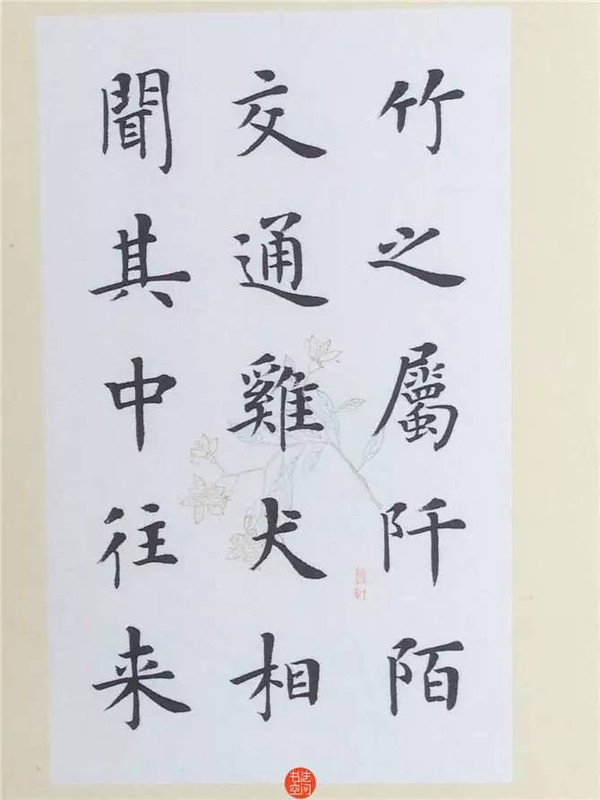 竹之屬阡陌
交通雞犬相
聞其中往来
书法空间